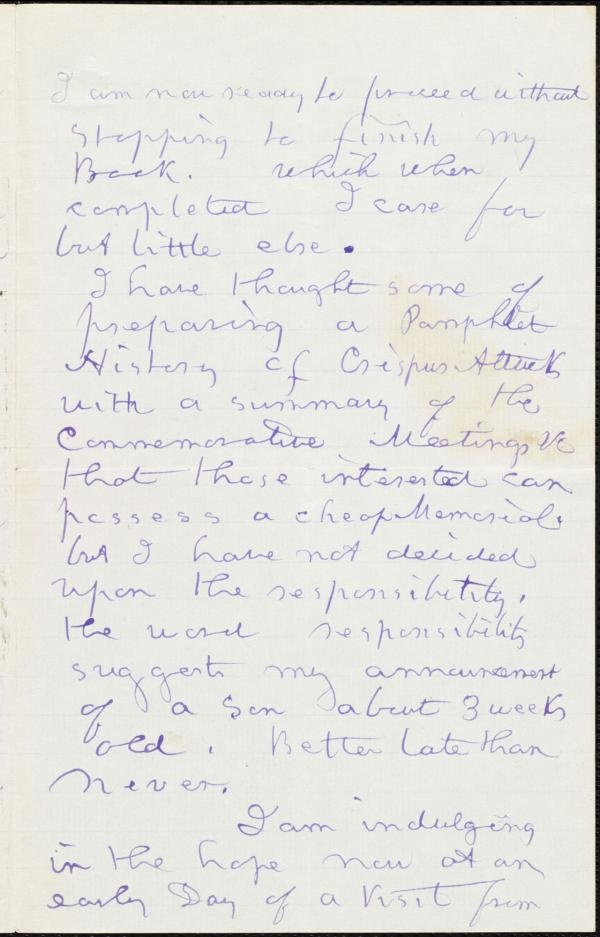 I am now ready to proceed without
stopping to finish my
Book. which when
completed I care for
but little else.
I have thought some of
preparing a Pamphlet
History of Crispus Attucks
with a summary of the
Commemorative Meetings &c
that those interested can
possess a cheap Memorial.
but I have not decided
upon the responsibility.
the word responsibility
suggests my announcement
of a Son about 3 weeks
old. Better late than
never.
I am indulging
in the hope now at an
early Day of a Visit from